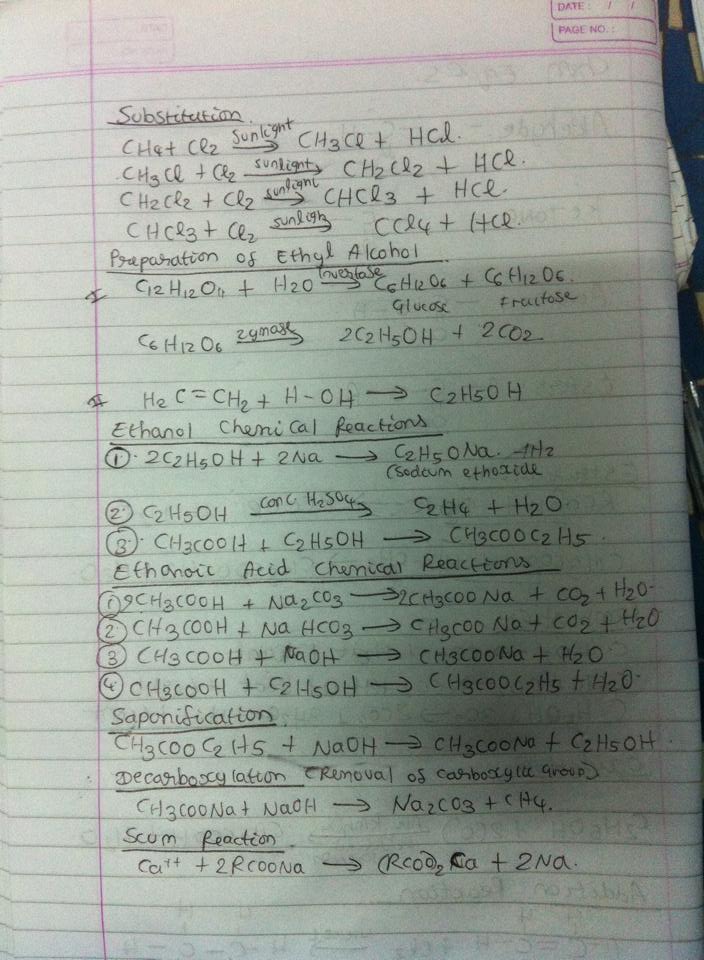 DATE: / /
PAGE NO.:
Substitution
CH4 + Cl2 sunlight → CH3Cl + HCl.
CH3Cl + Cl2 sunlight → CH2Cl2 + HCl.
CH2Cl2 + Cl2 sunlight → CHCl3 + HCl.
CHCl3 + Cl2 sunligh → CCl4 + HCl.
Preparation of Ethyl Alcohol
I C12H12O11 + H2O Invertase → C6H12O6 + C6H12O6.
Glucose Fructose
C6H12O6 zymase → 2C2H5OH + 2CO2
II H2C=CH2 + H-OH → C2H5OH
Ethanol Chemical Reactions
① 2C2H5OH + 2Na → C2H5ONa. + H2
(Sodium ethoxide
② C2H5OH conc. H2SO4 → C2H4 + H2O
③ CH3COOH + C2H5OH → CH3COOC2H5.
Ethanoic Acid Chemical Reactions
① 2CH3COOH + Na2CO3 → 2CH3COONa + CO2 + H2O.
② CH3COOH + NaHCO3 → CH3COONa + CO2 + H2O
③ CH3COOH + NaOH → CH3COONa + H2O
④ CH3COOH + C2H5OH → CH3COOC2H5 + H2O.
Saponification
CH3COOC2H5 + NaOH → CH3COONa + C2H5OH.
Decarboxylation (Removal of carboxylic Group)
CH3COONa + NaOH → Na2CO3 + CH4.
Scum Reaction
Ca++ + 2RCOONa → (RCOO)2Ca + 2Na.